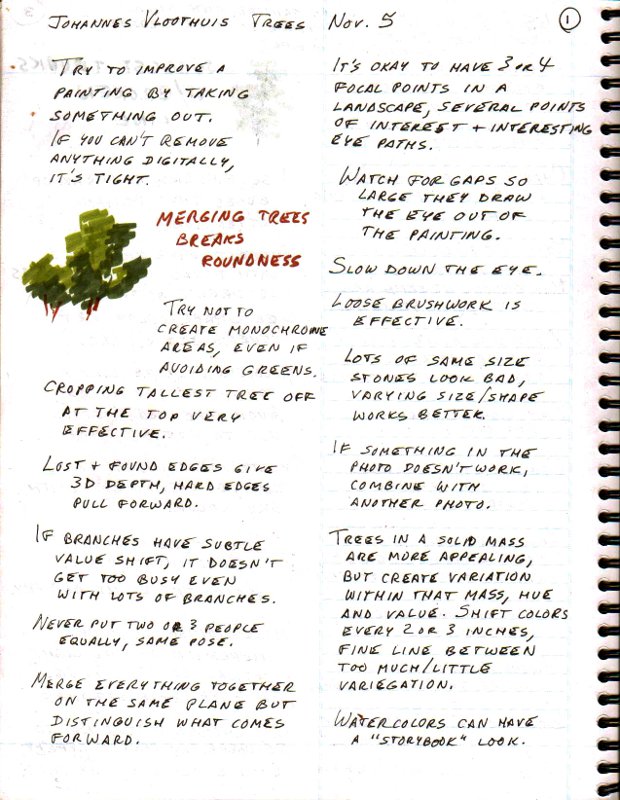 Johannes Vloothuis Trees Nov. 5 1
Try to improve a
painting by taking
something out.
If you can't remove
anything digitally,
it's tight.
Merging trees
breaks
roundness
Try not to
create monochrome
areas, even if
avoiding greens.
Cropping tallest tree off
at the top very
effective.
Lost + found edges give
3D depth, hard edges
pull forward.
If branches have subtle
value shift, it doesn't
get too busy even
with lots of branches.
Never put two or 3 people
equally, same pose.
Merge everything together
on the same plane but
distinguish what comes
forward.
It's okay to have 3 or 4
focal points in a
landscape, several points
of interest + interesting
eye paths.
Watch for gaps so
large they draw
the eye out of
the painting.
Slow down the eye.
Loose brushwork is
effective.
Lots of same size
stones look bad,
varying size/shape
works better.
If something in the
photo doesn't work,
combine with
another photo.
Trees in a solid mass
are more appealing,
but create variation
within that mass, hue
and value. Shift colors
every 2 or 3 inches,
fine line between
too much/little
variegation.
Watercolors can have
a "storybook" look.